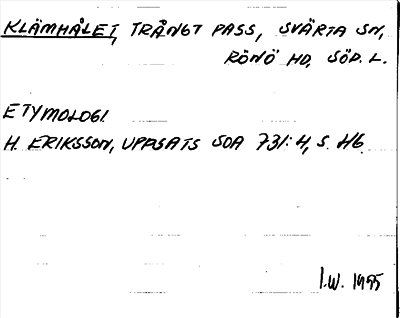 KLÄMHÅLET, TRÅNGT PASS, SVÄRTA SN,
RÖNÖ HD, SÖD. L.
ETYMOLOGI.
H. ERIKSSON, UPPSATS SOA 731:4, S. 46.
I.W. 1995